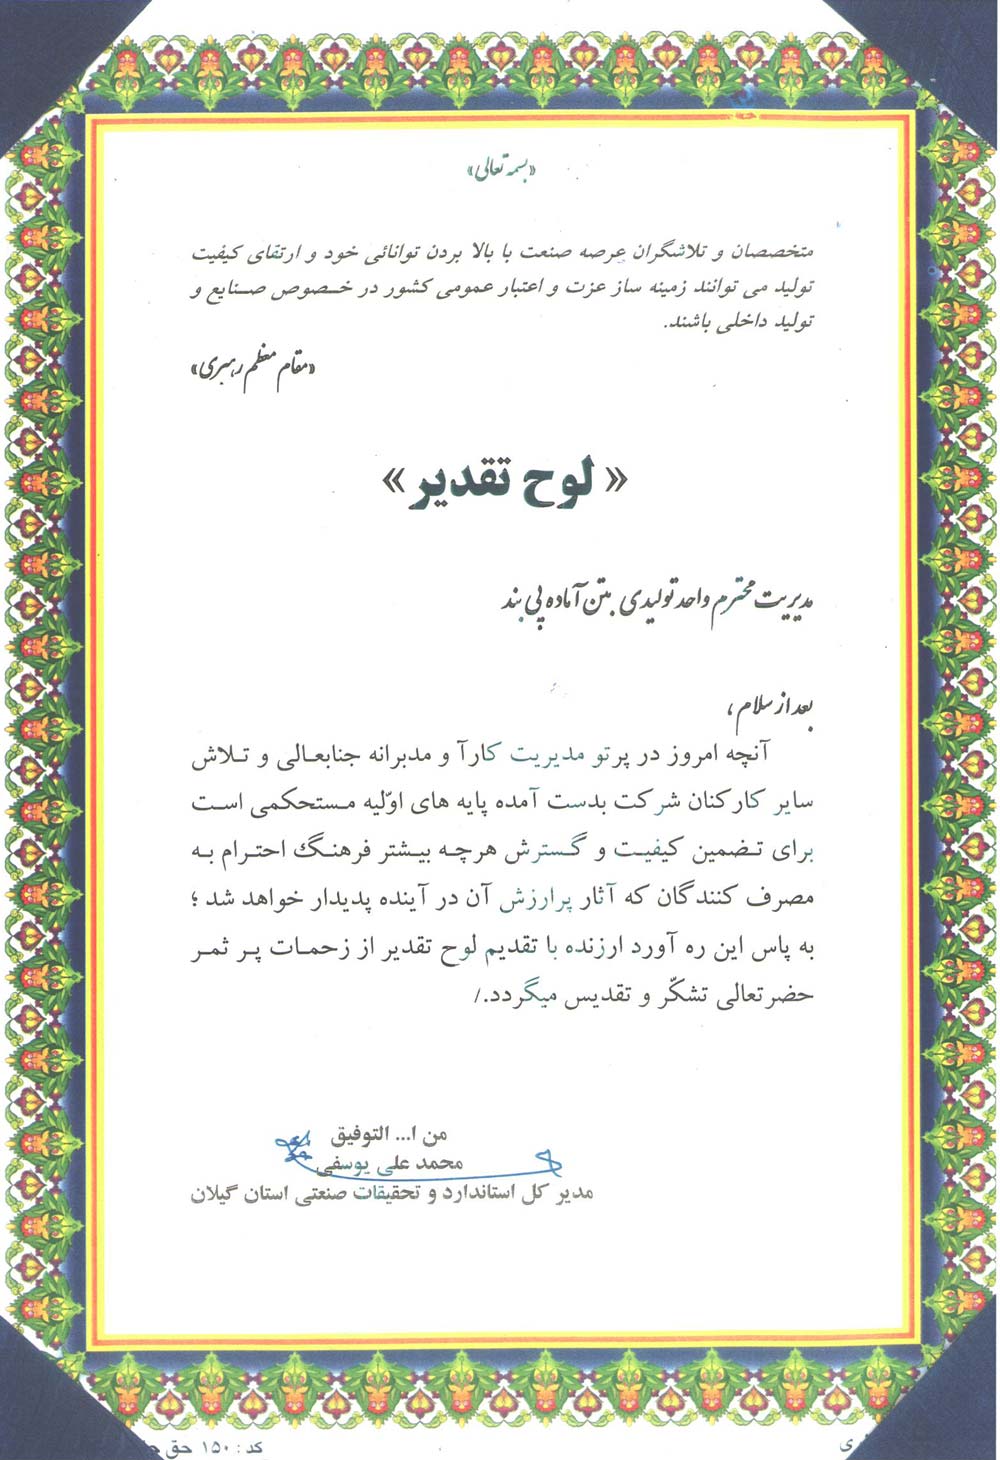 «بسمه تعالی»
متخصصان و تلاشگران عرصه صنعت با بالا بردن توانائی خود و ارتقای کیفیت
تولید می توانند زمینه ساز عزت و اعتبار عمومی کشور در خصوص صنایع و
تولید داخلی باشند.
«مقام معظم رهبری»
« لوح تقدیر »
مدیریت محترم واحد تولیدی بتن آماده پی بند
بعد از سلام ،
آنچه امروز در پرتو مدیریت کارآ و مدبرانه جنابعالی و تلاش
سایر کارکنان شرکت بدست آمده پایه های اوّلیه مستحکمی است
برای تضمین کیفیت و گسترش هرچه بیشتر فرهنگ احترام به
مصرف کنندگان که آثار پرارزش آن در آینده پدیدار خواهد شد ؛
به پاس این ره آورد ارزنده با تقدیم لوح تقدیر از زحمات پر ثمر
حضرتعالی تشکّر و تقدیس میگردد./
من ا... التوفیق
محمد علی یوسفی
مدیر کل استاندارد و تحقیقات صنعتی استان گیلان
کد : ۱۵۰ حق